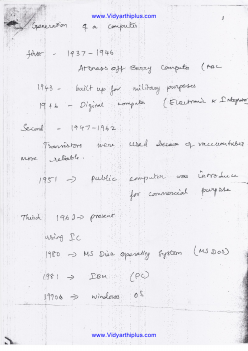 www.Vidyarthiplus.com
1
Generation of a computer
first - 1937 - 1946
Atanasoff Berry Computer (ABC
1943 - built up for military purposes
1946 - Digital computer (Electronic & Integrator
Second - 1947 - 1962
Transistors were used instead of vaccumtubes
more reliable.
1951 → public computer was introduce
for commercial purpose
Third 1963 → present
using IC
1980 → MS Disk operating System (MS DOS)
1981 → IBM (PC)
1990s → windows OS
www.Vidyarthiplus.com